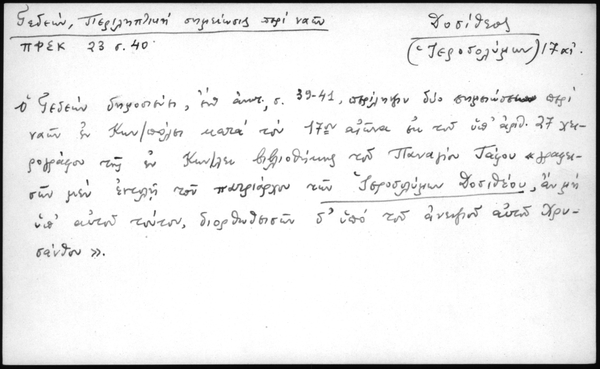 Γεδεών, Περιληπτική σημείωσις περί ναῶν
Δοσίθεος
ΠΡΣΚ 23 σ. 40.
(Ἱεροσολύμων) 17 αἰ.
Ὁ Γεδεών δημοσιεύει, ἐνθ' ἀνωτ., σ. 39-41, περίληψιν δύο σημειώσεων περί
ναῶν ἐν Κων/πόλει κατά τόν 17ον αἰῶνα ἐκ τοῦ ὑπ' ἀριθ. 27 χει-
ρογράφου τῆς ἐν Κων/λει βιβλιοθήκης τοῦ Παναγίου Τάφου «γραφει-
σῶν μέν ἐντολῇ τοῦ πατριάρχου τῶν Ἱεροσολύμων Δοσιθέου, ἄν μή
ὑπ' αὐτοῦ τούτου, διορθωθεισῶν δ' ὑπό τοῦ ἀνεψιοῦ αὐτοῦ Χρυ-
σάνθου».